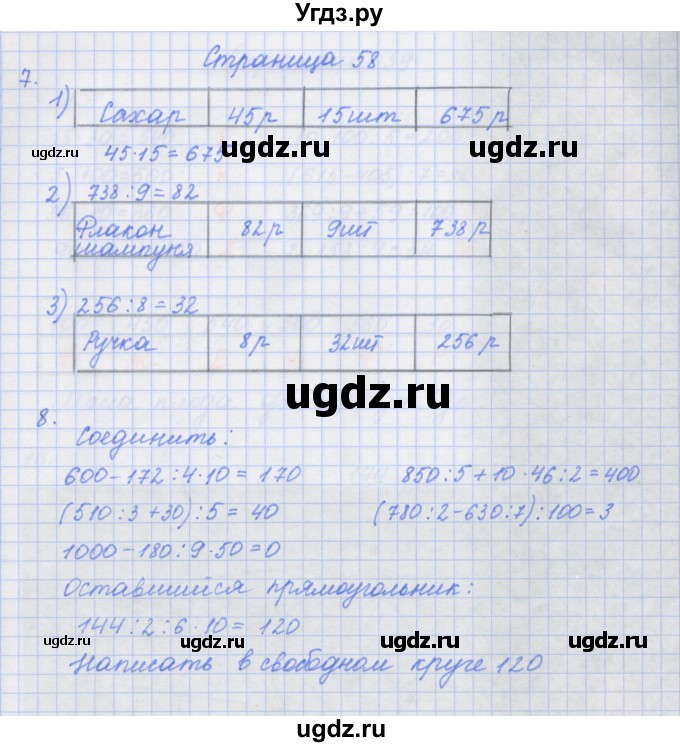 Угдз.ру
Страница 58
7.
1) Сахар 45р 15шт 675р
45·15=675
2) 738:9=82
Флакон шампуня 82р 9шт 738р
3) 256:8=32
Ручка 8р 32шт 256р
8.
Соединить:
600-172:4·10=170 850:5+10·46:2=400
(510:3+30):5=40 (780:2-630:7):100=3
1000-180:9·50=0
Оставшийся прямоугольник:
144:2:6·10=120
Написать в свободном круге 120
ugdz.ru
ugdz.ru
ugdz.ru
ugdz.ru
ugdz.ru
ugdz.ru
ugdz.ru
ugdz.ru
ugdz.ru
ugdz.ru
ugdz.ru